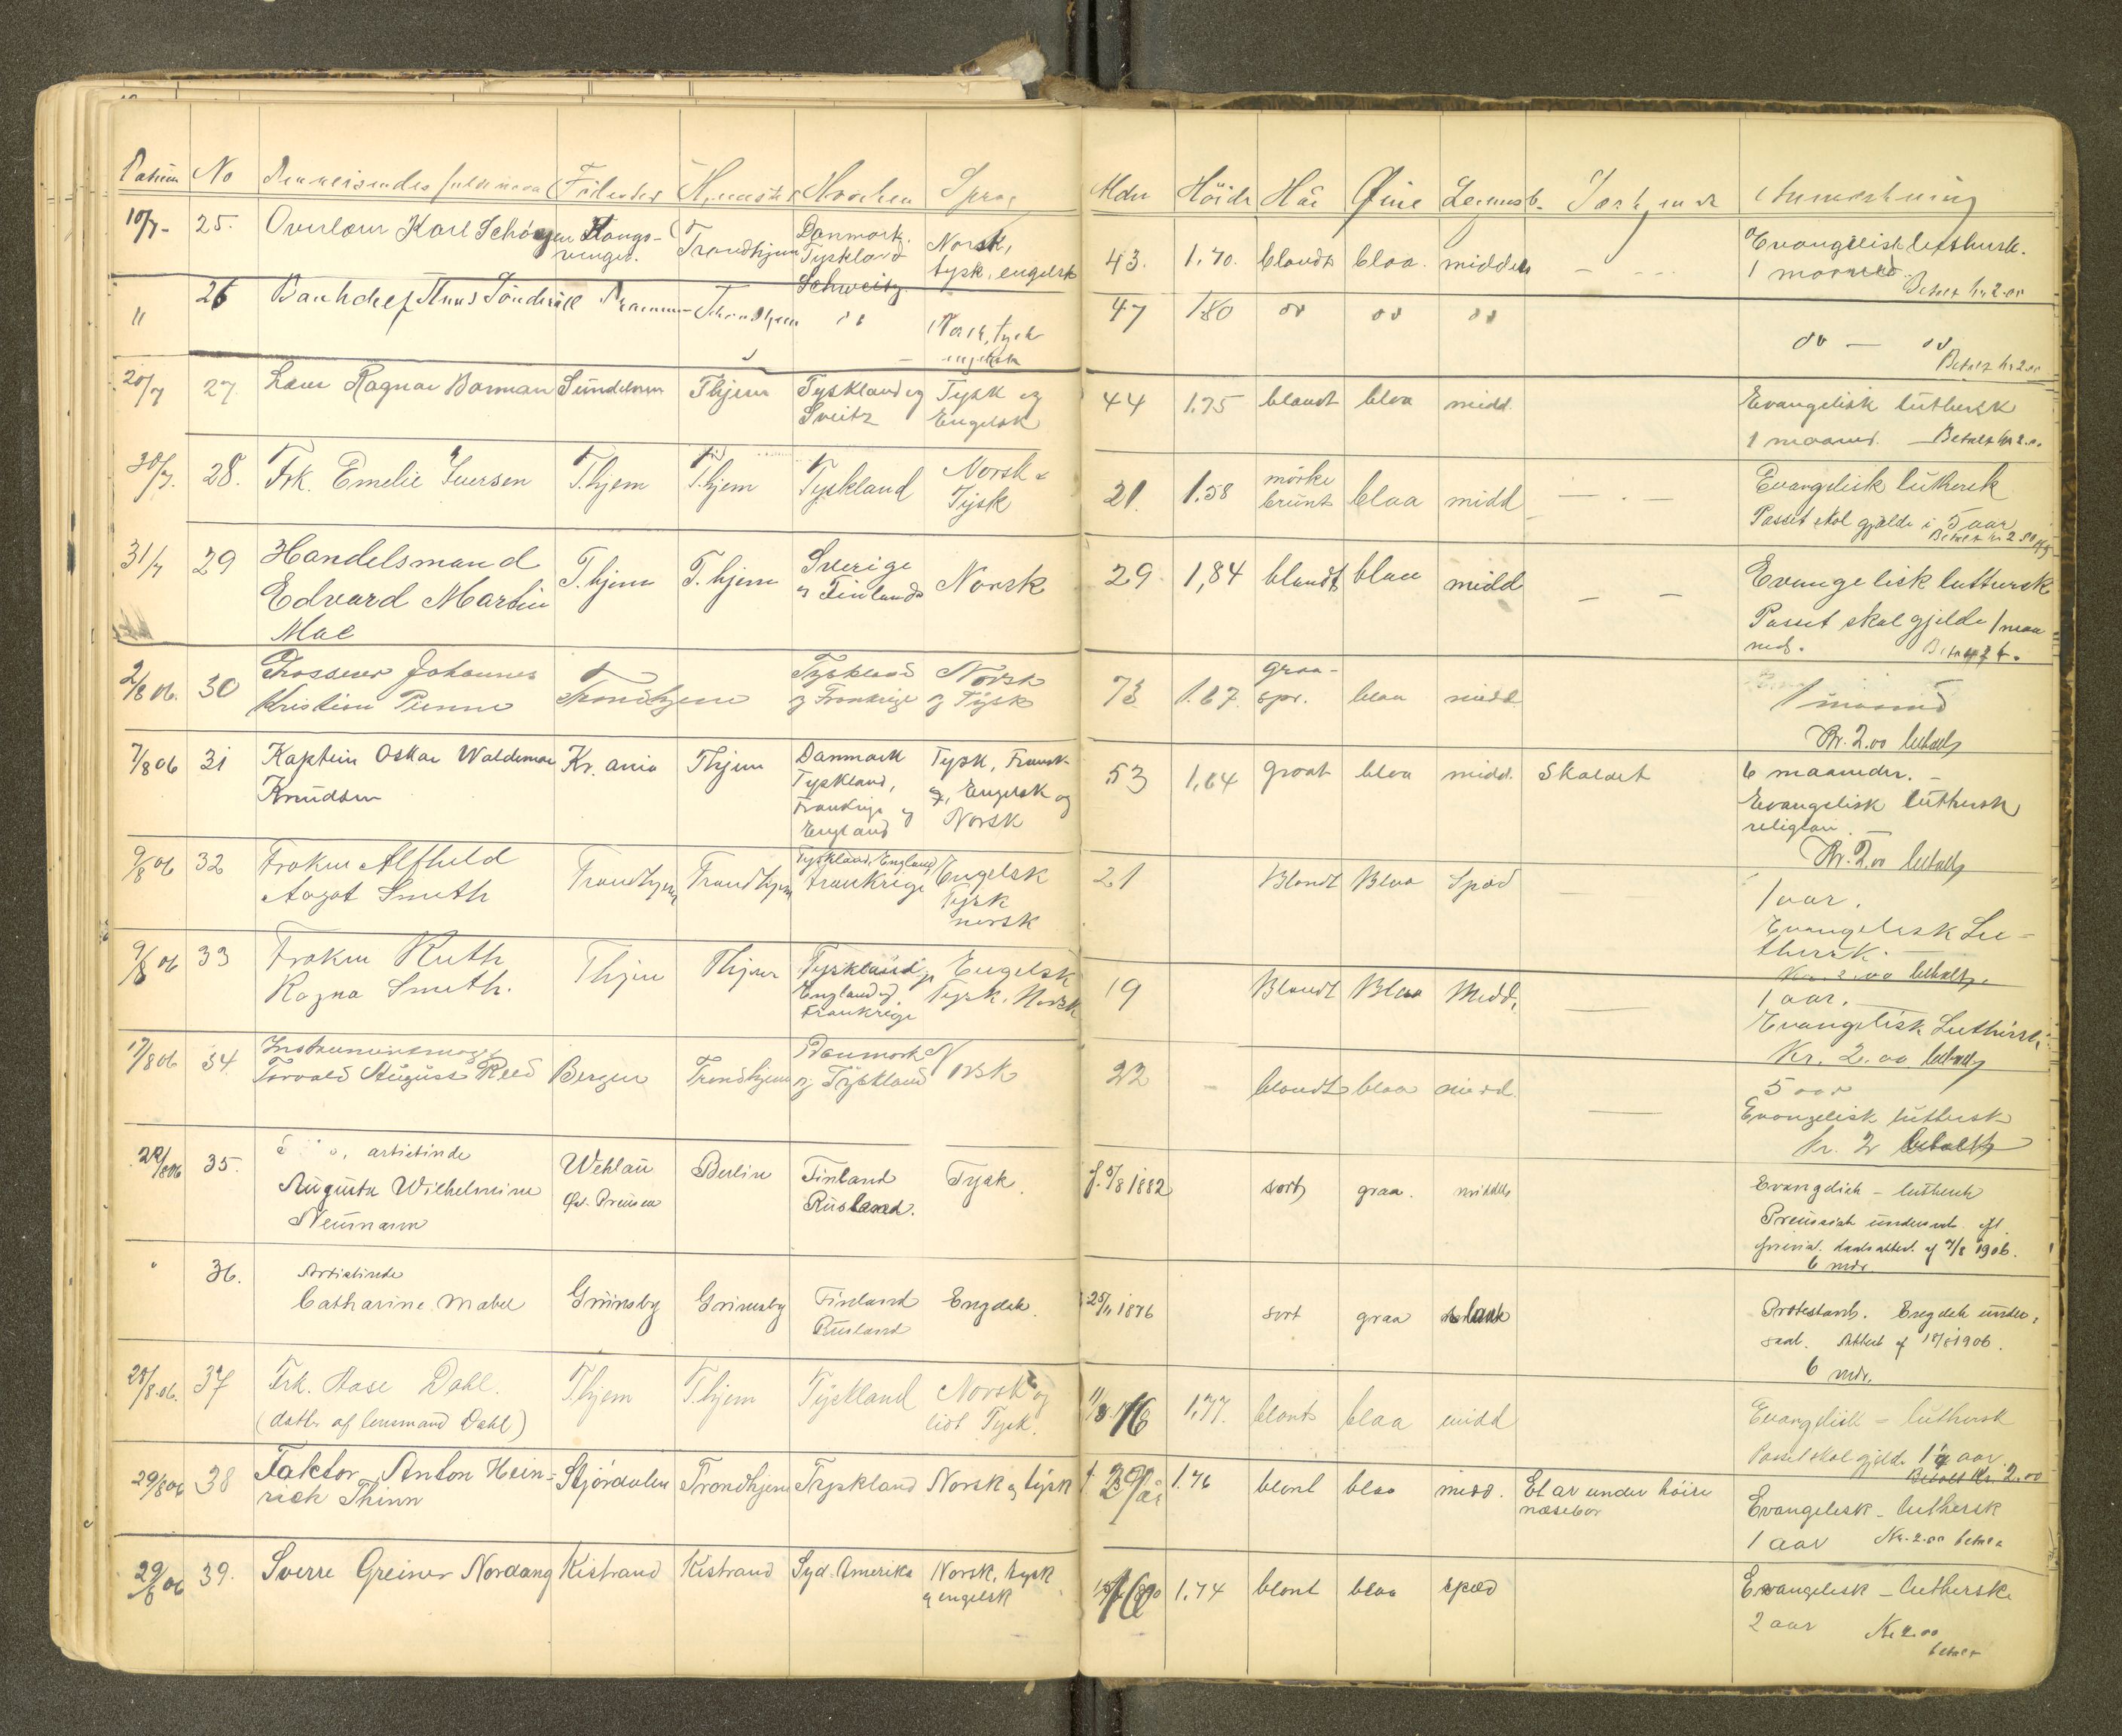 Datum No Den reisendes fulde navn Födested Hjemsted Hvorhen Sprog Alder Höide Hår Øine Legemsb. Særkjende Anmerkning
10/7- 25. Overlærer Karl Schöyen Kongs- Trondhjem Danmark. Norsk, 43. 1.70. blondt blaa. middels — - - - Evangelisk luthersk.
vinger. Tyskland tysk, engelsk 1 maaned.
Schweitz. Betalt kr 2.00
" 26 Bankchef Trondhjem " Norsk, tysk 47 1.80 do do do do — do
engelsk Betalt kr 2.00
20/7 27 Ragnar Borman T.hjem Tyskland og Tysk og 44 1.75 blondt blaa midd. Evangelisk luthersk
Sveitz Engelsk 1 maaned. Betalt kr 2.00
30/7. 28. Frk. Emelie Iversen T.hjem T.hjem Tyskland Norsk & 21. 1.58 mörke blaa midd — . — Evangelisk luthersk
Tysk brunt Passet skal gjælde i 5 aar
Betalt kr 2.00
31/7 29 Handelsmand T.hjem T.hjem Sverige Norsk 29. 1,84 blondt blaa midd — — Evangelisk luthersk
Edvard Martin og Finland Passet skal gjelde 1 maa
Moe ned.
2/8 06. 30 Johannes Trondhjem Tyskland Norsk 73 1.67. graa- blaa midd. 1 maaned
Kristian og Frankrige og Tysk spr. Kr. 2.00 betalt
7/8 06 31 Kaptein Oskar Waldemar Kr.ania T.hjem Danmark Tysk, Fransk 53 1,64 graat blaa midd. Skaldet 6 maaneder. —
Knudsen Tyskland, Engelsk og Evangelisk luthersk
Frankrige og Norsk religion. —
England Kr. 2.00 betalt
9/8 06 32 Frøken Alfhild Trondhjem Trondhjem Tyskland, England Engelsk 21 Blondt Blaa Späd — 1 aar.
Aagot Smith Frankrige Tysk Evangelisk Lu-
norsk thersk.
Kr. 2.00 betalt.
9/8 06 33 Frøken Ruth T.hjem T.hjem Tyskland, Engelsk 19 Blondt Blaa Midd. — 1 aar.
Ragna Smith. England og Tysk, Norsk Evangelisk Luthersk
Frankrige Kr. 2.00 betalt
17/8 06 34. Instrumentmager Bergen Trondhjem Danmark Norsk 22 - blondt blaa midd. — 5 aar
Torvald August Reed og Tyskland Evangelisk luthersk
kr. 2 betalt
22/8 06 35. artistinde Wehlau Berlin Finland Tysk. f. 5/8 1882 sort graa. middels Evangelisk - luthersk
Augusta Wilhelmine Øst. Preusen Rusland. Preussisk undersaat.
Neumann af 7/8 1906.
6 mdr.
" 36. Artistinde Grimsby Grimsby Finland Engelsk. 25/11 1876 sort graa slank Protestant. Engelsk under-
Catharine Mabel Rusland saat. Attest af 18/8 1906.
6 mdr.
28/8.06. 37 Frk. Aase Dahl. T.hjem T.hjem Tyskland Norsk og 16 1.77. blont blaa midd Evangelisk - luthersk
(datter af lensmand Dahl) lidt Tysk. Passet skal gjelde 1 aar.
Betalt Kr. 2.00
29/8 06 38 Faktor Anton Hein- Stjørdalen Trondhjem Tyskland Norsk og tysk 29 år 1.76 blont blaa midd. Et ar under høire Evangelisk - luthersk
rick Thinn næsebor 1 aar Kr. 2.00 betalt
29/8 06 39. Sverre Greiner Nordang Kistrand Kistrand Syd. Amerika Norsk, tysk 16 1.74 blont blaa spæd Evangelisk - lutherske
og engelsk 2 aar Kr 2.00
betalt